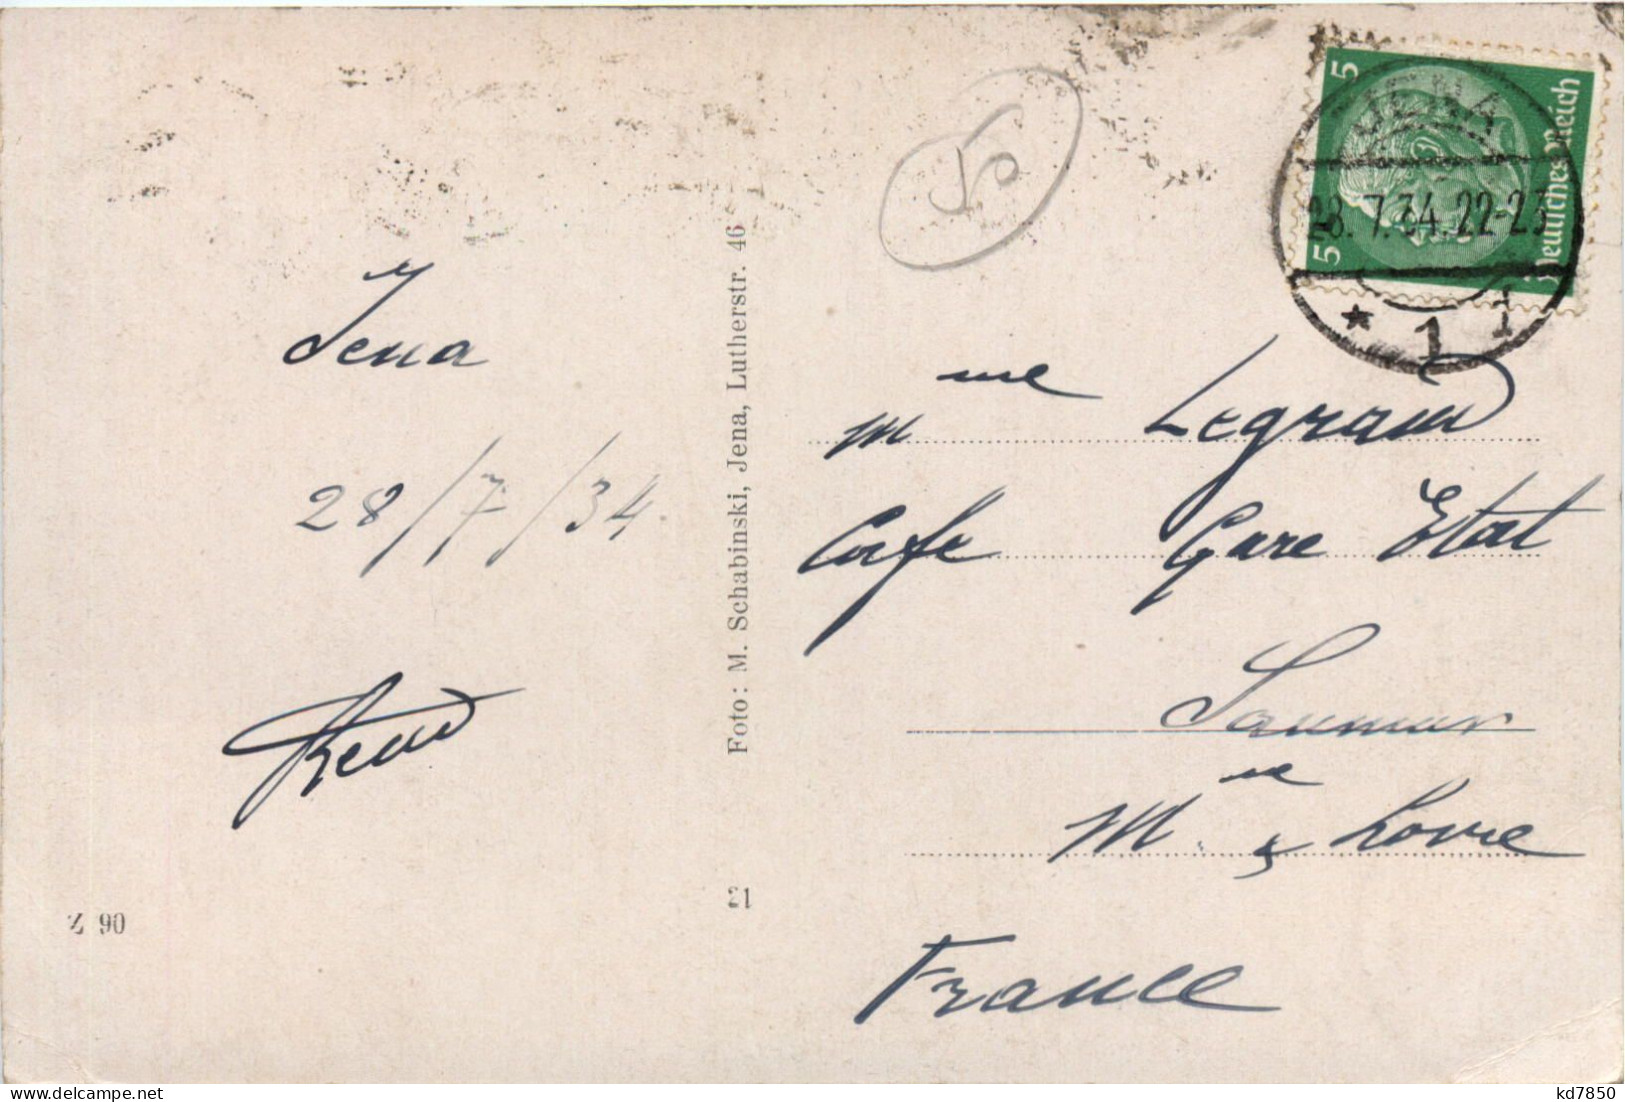 5
5
5
Deutsches Reich
JENA
28.7.34.22-23
* 1
Jena
28/7/34
René
Foto: M. Schabinski, Jena, Lutherstr. 46
21
Z 90
Mme Legrand
Cafe Gare Etat
Saumur
M ne & Loire
France
www.delcampe.net
kd7850